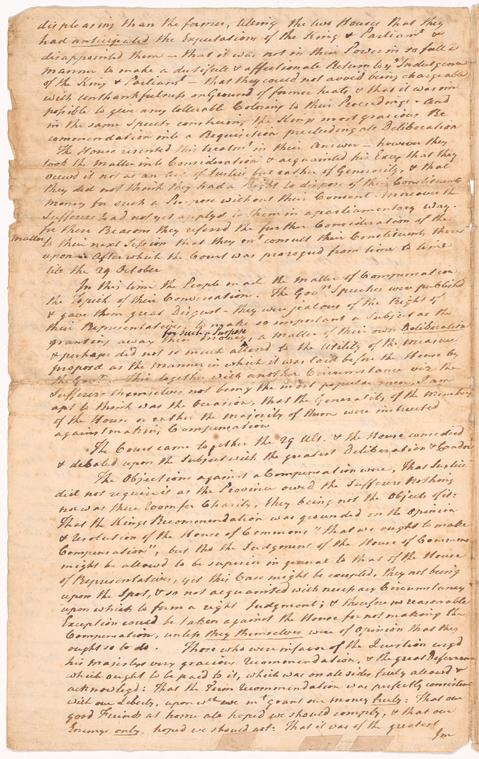 displeasing than the former, telling the two Houses that they
had anticipated the Expectations of the King & Parliamt &
disappointed them – that it was not in their Power in so full a
manner to make a dutifull & affectionate Return to ye Indulgence
of the King & Parliamt – that they could not avoid being chargeable
with unthankfulness on Ground of former heats, & that it was im
possible to give any tollerable Coloring to their Proceedings – And
in the same Speech construing the Kings most gracious Re
commendation into a Requisition precluding all Deliberation
The House resented this treatmt in their Answer – however they
took the Matter into Consideration & acquainted his Excy that they
viewd it not as an Act of Justice but rather of Generosity, & that
they did not think they had a Right to dispose of their Constituents
money for such a Purpose without their Consent. Moreover the
Sufferers had not yet applyd to them in a parliamentary Way.
for these Reasons they referrd the further Consideration of the
Matter to their next Session that they mt consult their Constituents there
upon – After which the Court was prorogued from time to time
till the 29 October
In this time the People made the matter of Compensation
the Topick of their Conversation. The Govrs Speeches were published
& gave them great Disgust – they were jealous of the Right of
their Representatives to make so important a Subject as the
granting away their Money for such a Purpose, a Matter of their own Deliberation
& perhaps did not so much attend to the Utility of the measure
proposd as the Manner in which it was laid before the House by
the Govr. This together with another Circumstance viz the
Sufferers themselves not being the most popular men, I am
apt to think was the Occasion, that the Generality of the Members
of the House or rather the Majority of them were instructed
against making Compensation
The Court came together the 29 Ult. & the House considerd
& debated upon the Subject with the greatest Deliberation & Candor
The Objections against a Compensation were, That Justice
did not require it as the Province owed the Sufferers Nothing
nor was there Room for Charity, they being not the Objects of it:
That the Kings Recommendation was grounded on the Opinion
& Resolution of the House of Commons "that we ought to make
Compensation", but tho the Judgment of the House of Commons
might be allowd to be superior in general to that of the House
of Representatives, yet this Case might be excepted, they not being
upon the Spot, & so not acquainted with necessary Circumstances
upon which to form a right Judgment; & therefore no reasonable
Exception could be taken against the House for not making the
Compensation, unless they themselves were of Opinion that they
ought so to do. Those who were in favor of the Question urgd
his Majestys very gracious recommendation, & the great Deference
which ought to be paid to it, which was on all sides fully allowd &
acknowlegd: That the Term recommendation was perfectly consistent
with our Liberty, upon wch we mt grant our money freely: That our
good Friends at home also hoped we should comply, & that our
Enemys only, hoped we should not: That it was of the greatest
Im